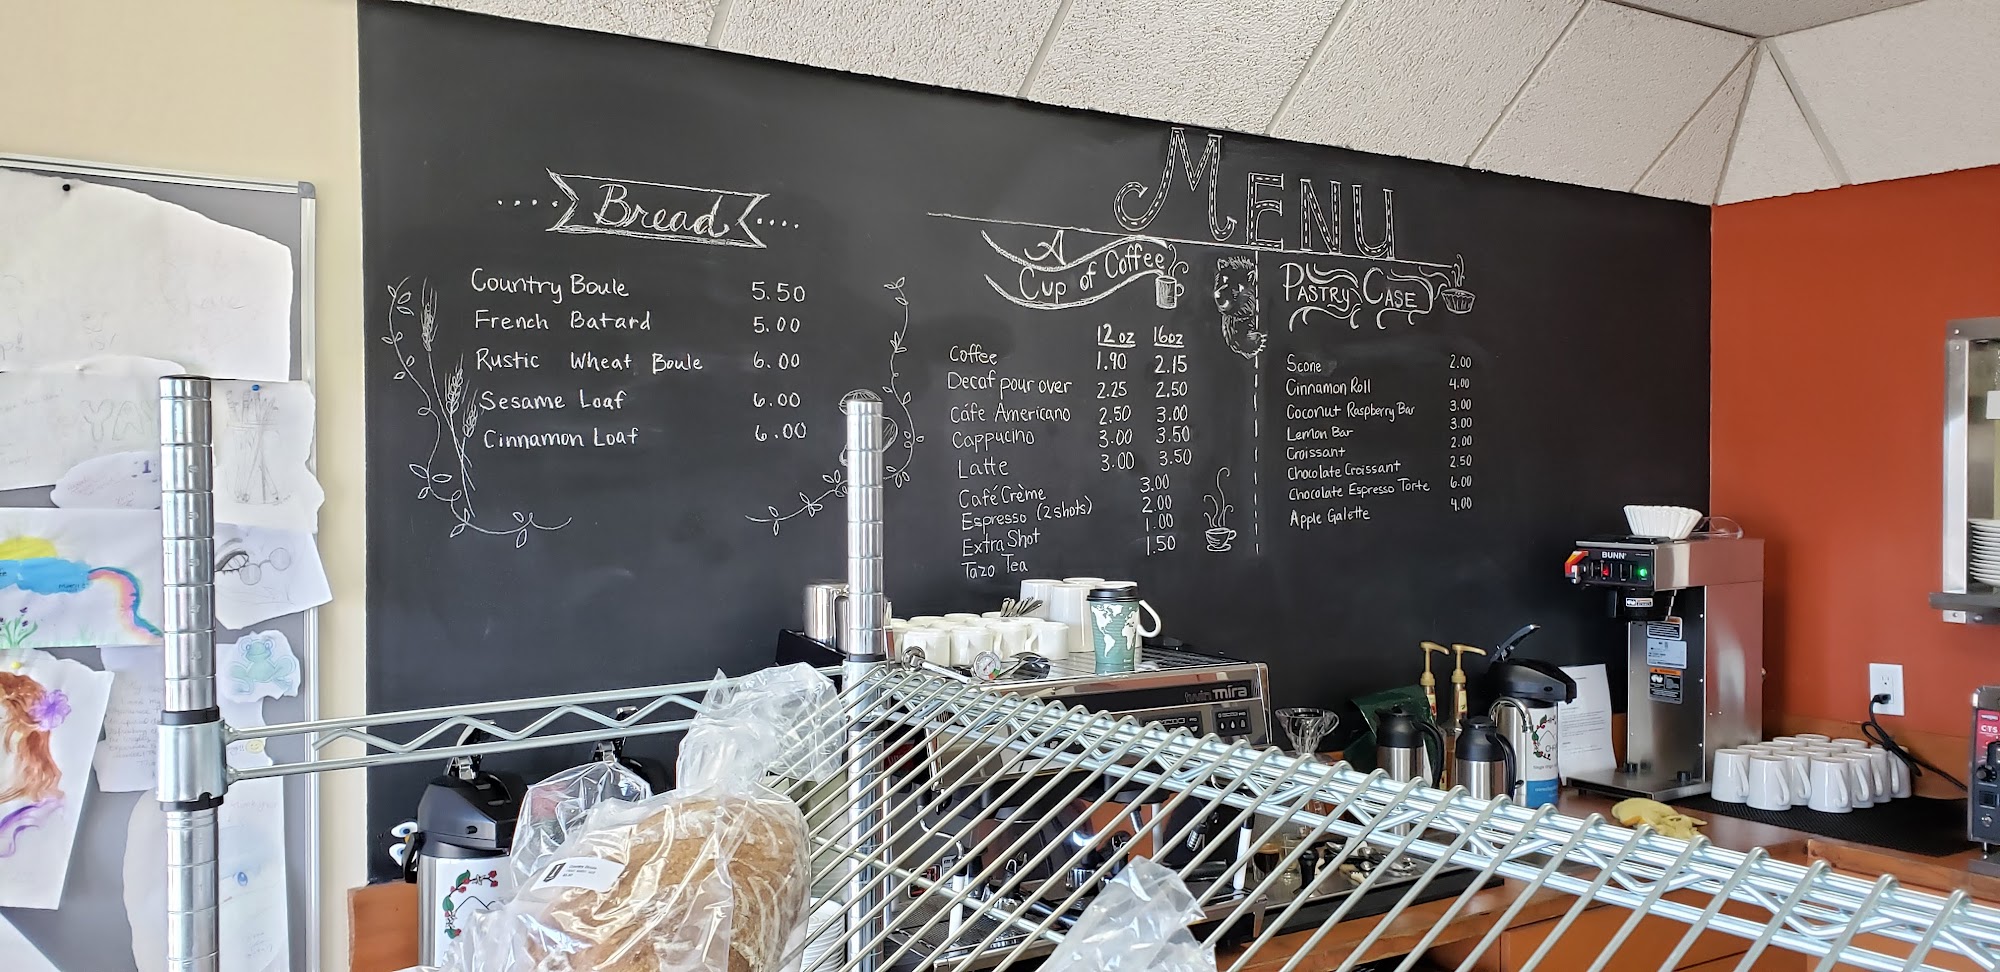 Bread
Country Boule 5.50
French Batard 5.00
Rustic Wheat Boule 6.00
Sesame Loaf 6.00
Cinnamon Loaf 6.00
MENU
A
Cup of Coffee
12oz 16oz
Coffee 1.90 2.15
Decaf pour over 2.25 2.50
Cáfe Americano 2.50 3.00
Cappucino 3.00 3.50
Latte 3.00 3.50
Café Crème 3.00
Espresso (2 shots) 2.00
Extra Shot 1.00
Tazo Tea 1.50
PASTRY CASE
Scone 2.00
Cinnamon Roll 4.00
Coconut Raspberry Bar 3.00
Lemon Bar 3.00
Croissant 2.00
Chocolate Croissant 2.50
Chocolate Espresso Torte 6.00
Apple Galette 4.00
YAY
BUNN
twin mira
CTS